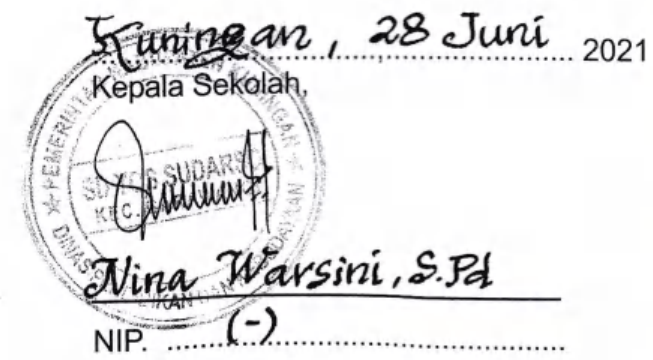 Kuningan, 28 Juni 2021
Kepala Sekolah,
SUDARSO
KEC.
Nina Warsini, S.Pd
NIP. (-)